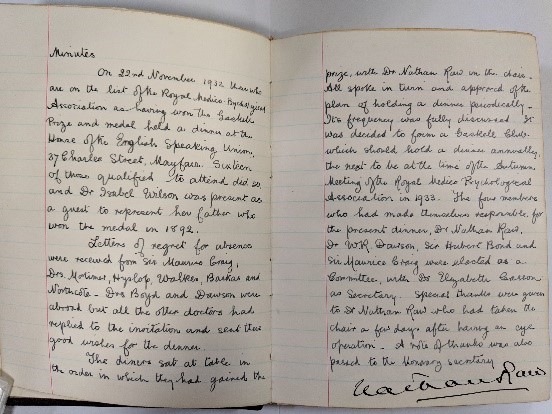 Minutes
On 22nd November 1932 those who
are on the list of the Royal Medico-Psychological
Association as having won the Gaskell
Prize and medal held a dinner at the
House of the English Speaking Union,
37 Charles Street, Mayfair. Sixteen
of those qualified to attend did so,
and Dr Isabel Wilson was present as
a guest to represent her father who
won the medal in 1892.
Letters of regret for absence
were received from Sir Maurice Craig,
Drs. Mortimer, Hyslop, Walker, Barkas and
Northcote - Drs Boyd and Dawson were
abroad but all the other doctors had
replied to the invitation and sent their
good wishes for the dinner.
The diners sat at table in
the order in which they had gained the
prize, with Dr Nathan Raw in the chair.
All spoke in turn and approved of the
plan of holding a dinner periodically -
Its frequency was fully discussed. It
was decided to form a Gaskell Club
which should hold a dinner annually,
the next to be at the time of the Autumn
Meeting of the Royal Medico Psychological
Association in 1933. The four members
who had made themselves responsible for
the present dinner, Dr Nathan Raw,
Dr W.R. Dawson, Sir Hubert Bond and
Sir Maurice Craig were elected as a
Committee, with Dr Elizabeth Casson
as Secretary. Special thanks were given
to Dr Nathan Raw who had taken the
chair a few days after having an eye
operation - A vote of thanks was also
passed to the Honorary secretary
Nathan Raw